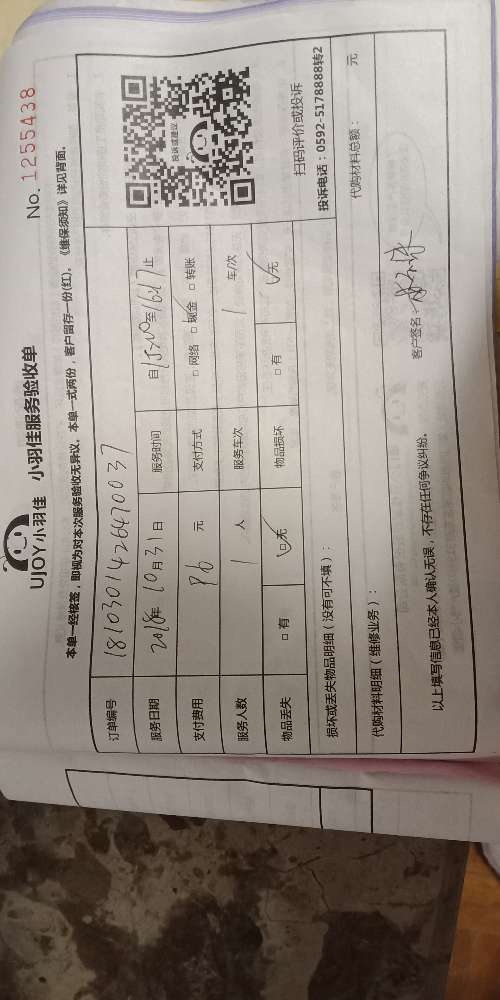 UJOY小羽佳 小羽佳服务验收单 No. 1255438
本单一经核签，即视为对本次服务验收无异议。本单一式两份，客户留存一份(红)。《维保须知》详见背面。
订单编号 181030142647 0037
服务日期 2018年10月31日 服务时间 自15:20至16:17止
支付费用 96 元 支付方式 □ 网络 □ 现金 □ 转账
服务人数 1 人 服务车次 1 车/次
物品丢失 □ 有 □ 无 物品损坏 □ 有 □ 无
投诉或建议
扫码评价或投诉
投诉电话：0592-5178888转2
损坏或丢失物品明细（没有可不填）：
代购材料明细（维修业务）： 代购材料总额： 元
以上填写信息已经本人确认无误，不存在任何争议纠纷。 客户签名：